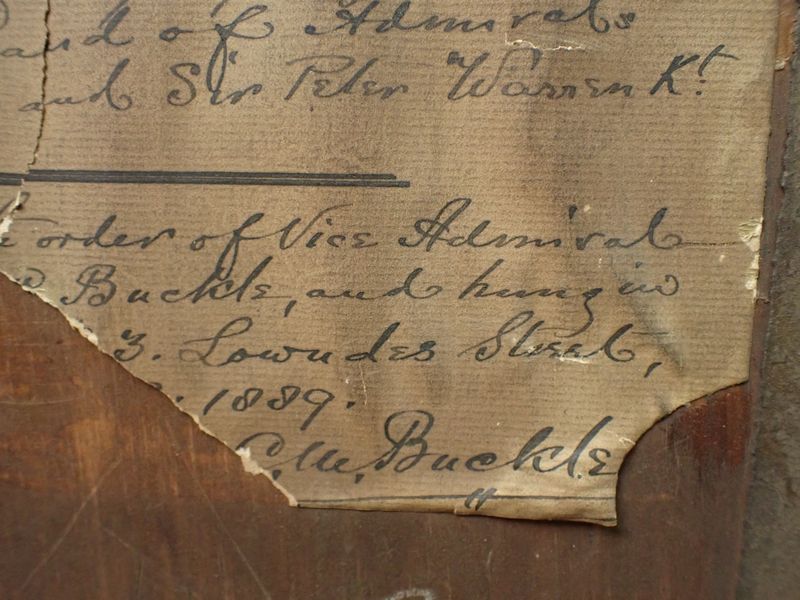 and of Admirals
and Sir Peter Warren Kt.
order of Vice Admiral
Buckle, and hung in
3. Lowndes Street,
1889.
C.M. Buckle
"